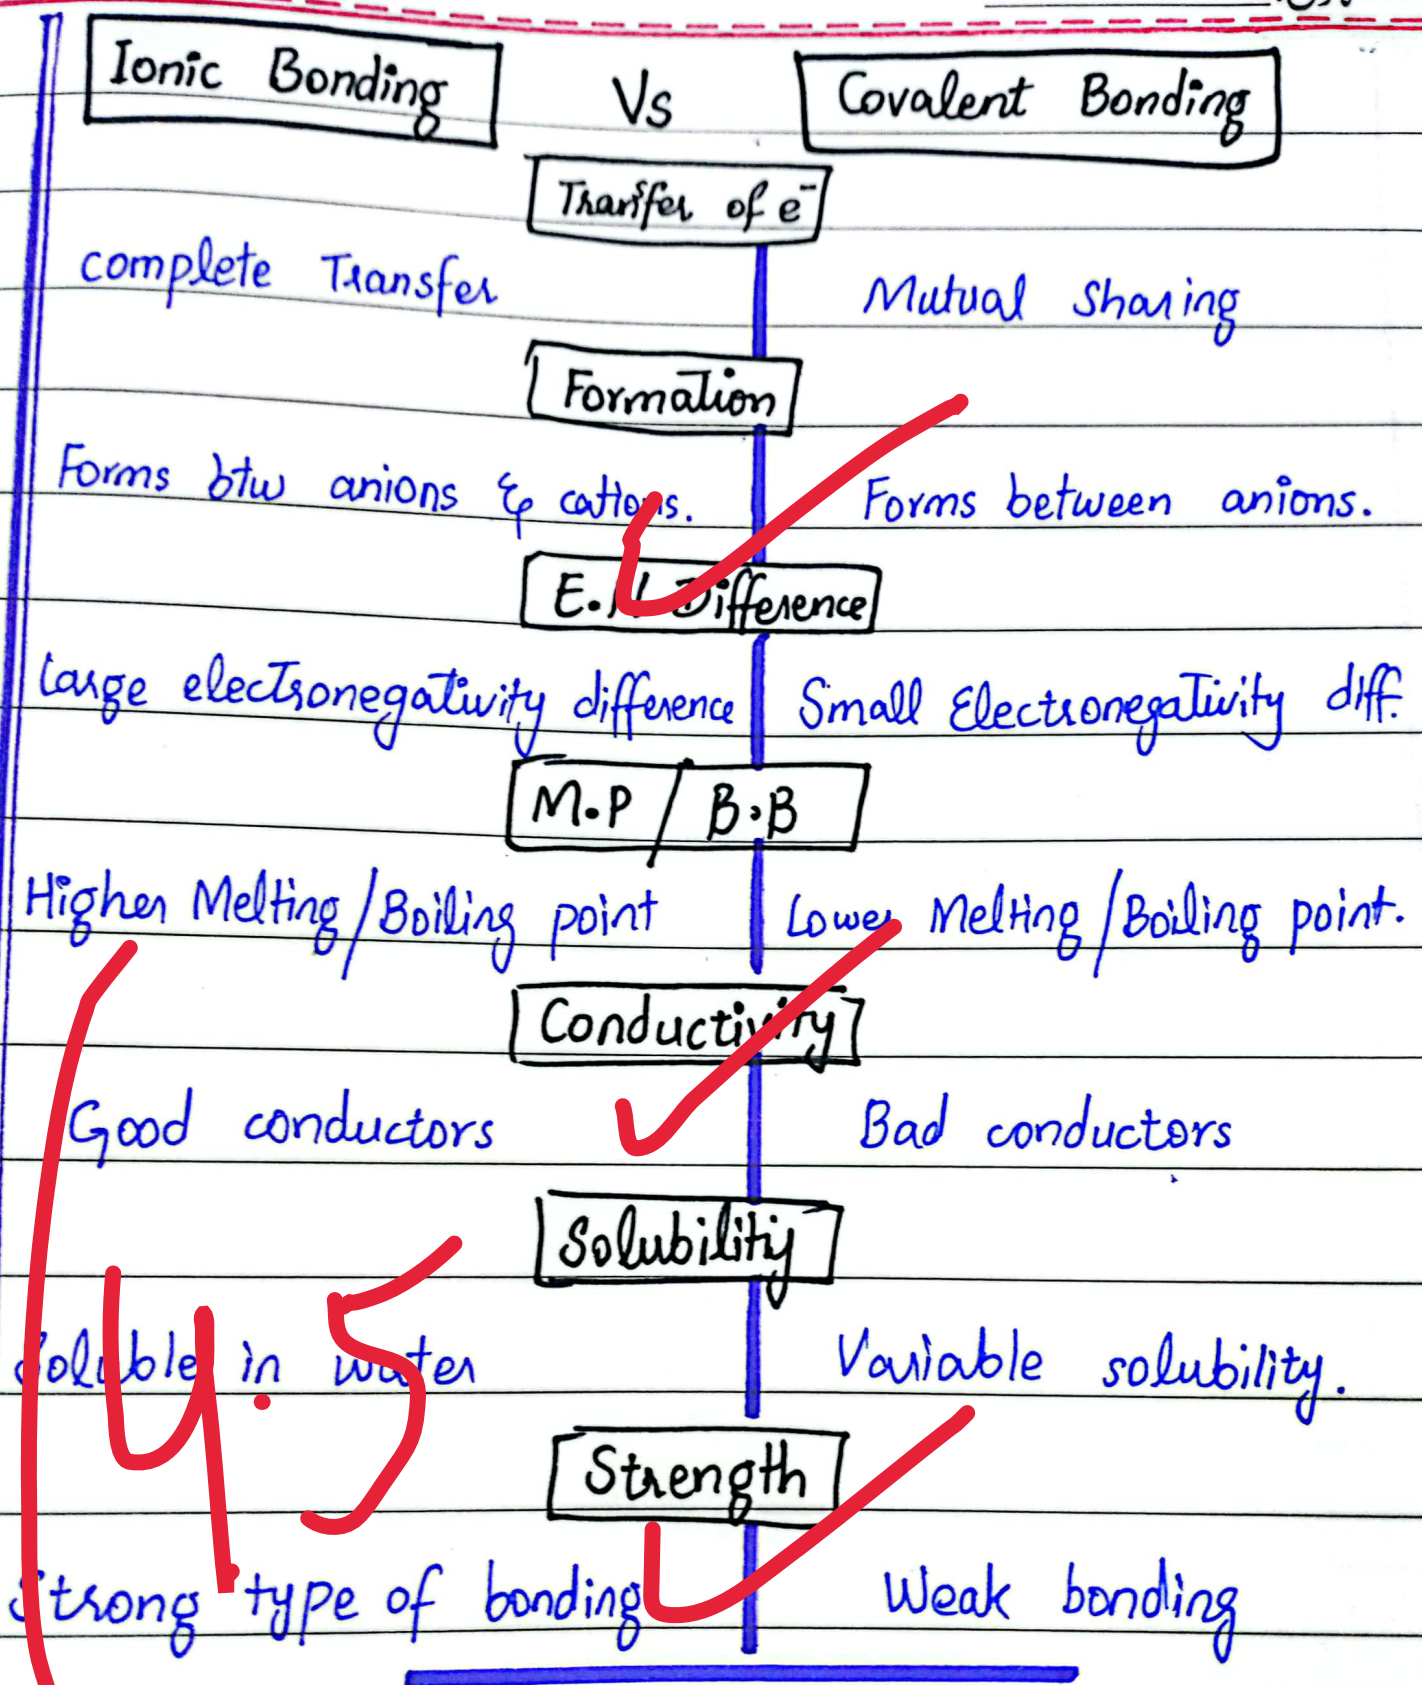 Ionic Bonding Vs Covalent Bonding
Transfer of e⁻
complete Transfer Mutual Sharing
Formation
Forms btw anions & cations. Forms between anions.
E.N Difference
Large electronegativity difference Small Electronegativity diff.
M.P / B.B
Higher Melting/Boiling point Lower Melting/Boiling point.
Conductivity
Good conductors Bad conductors
Solubility
Soluble in water Variable solubility.
4.5
Strength
Strong type of bonding Weak bonding